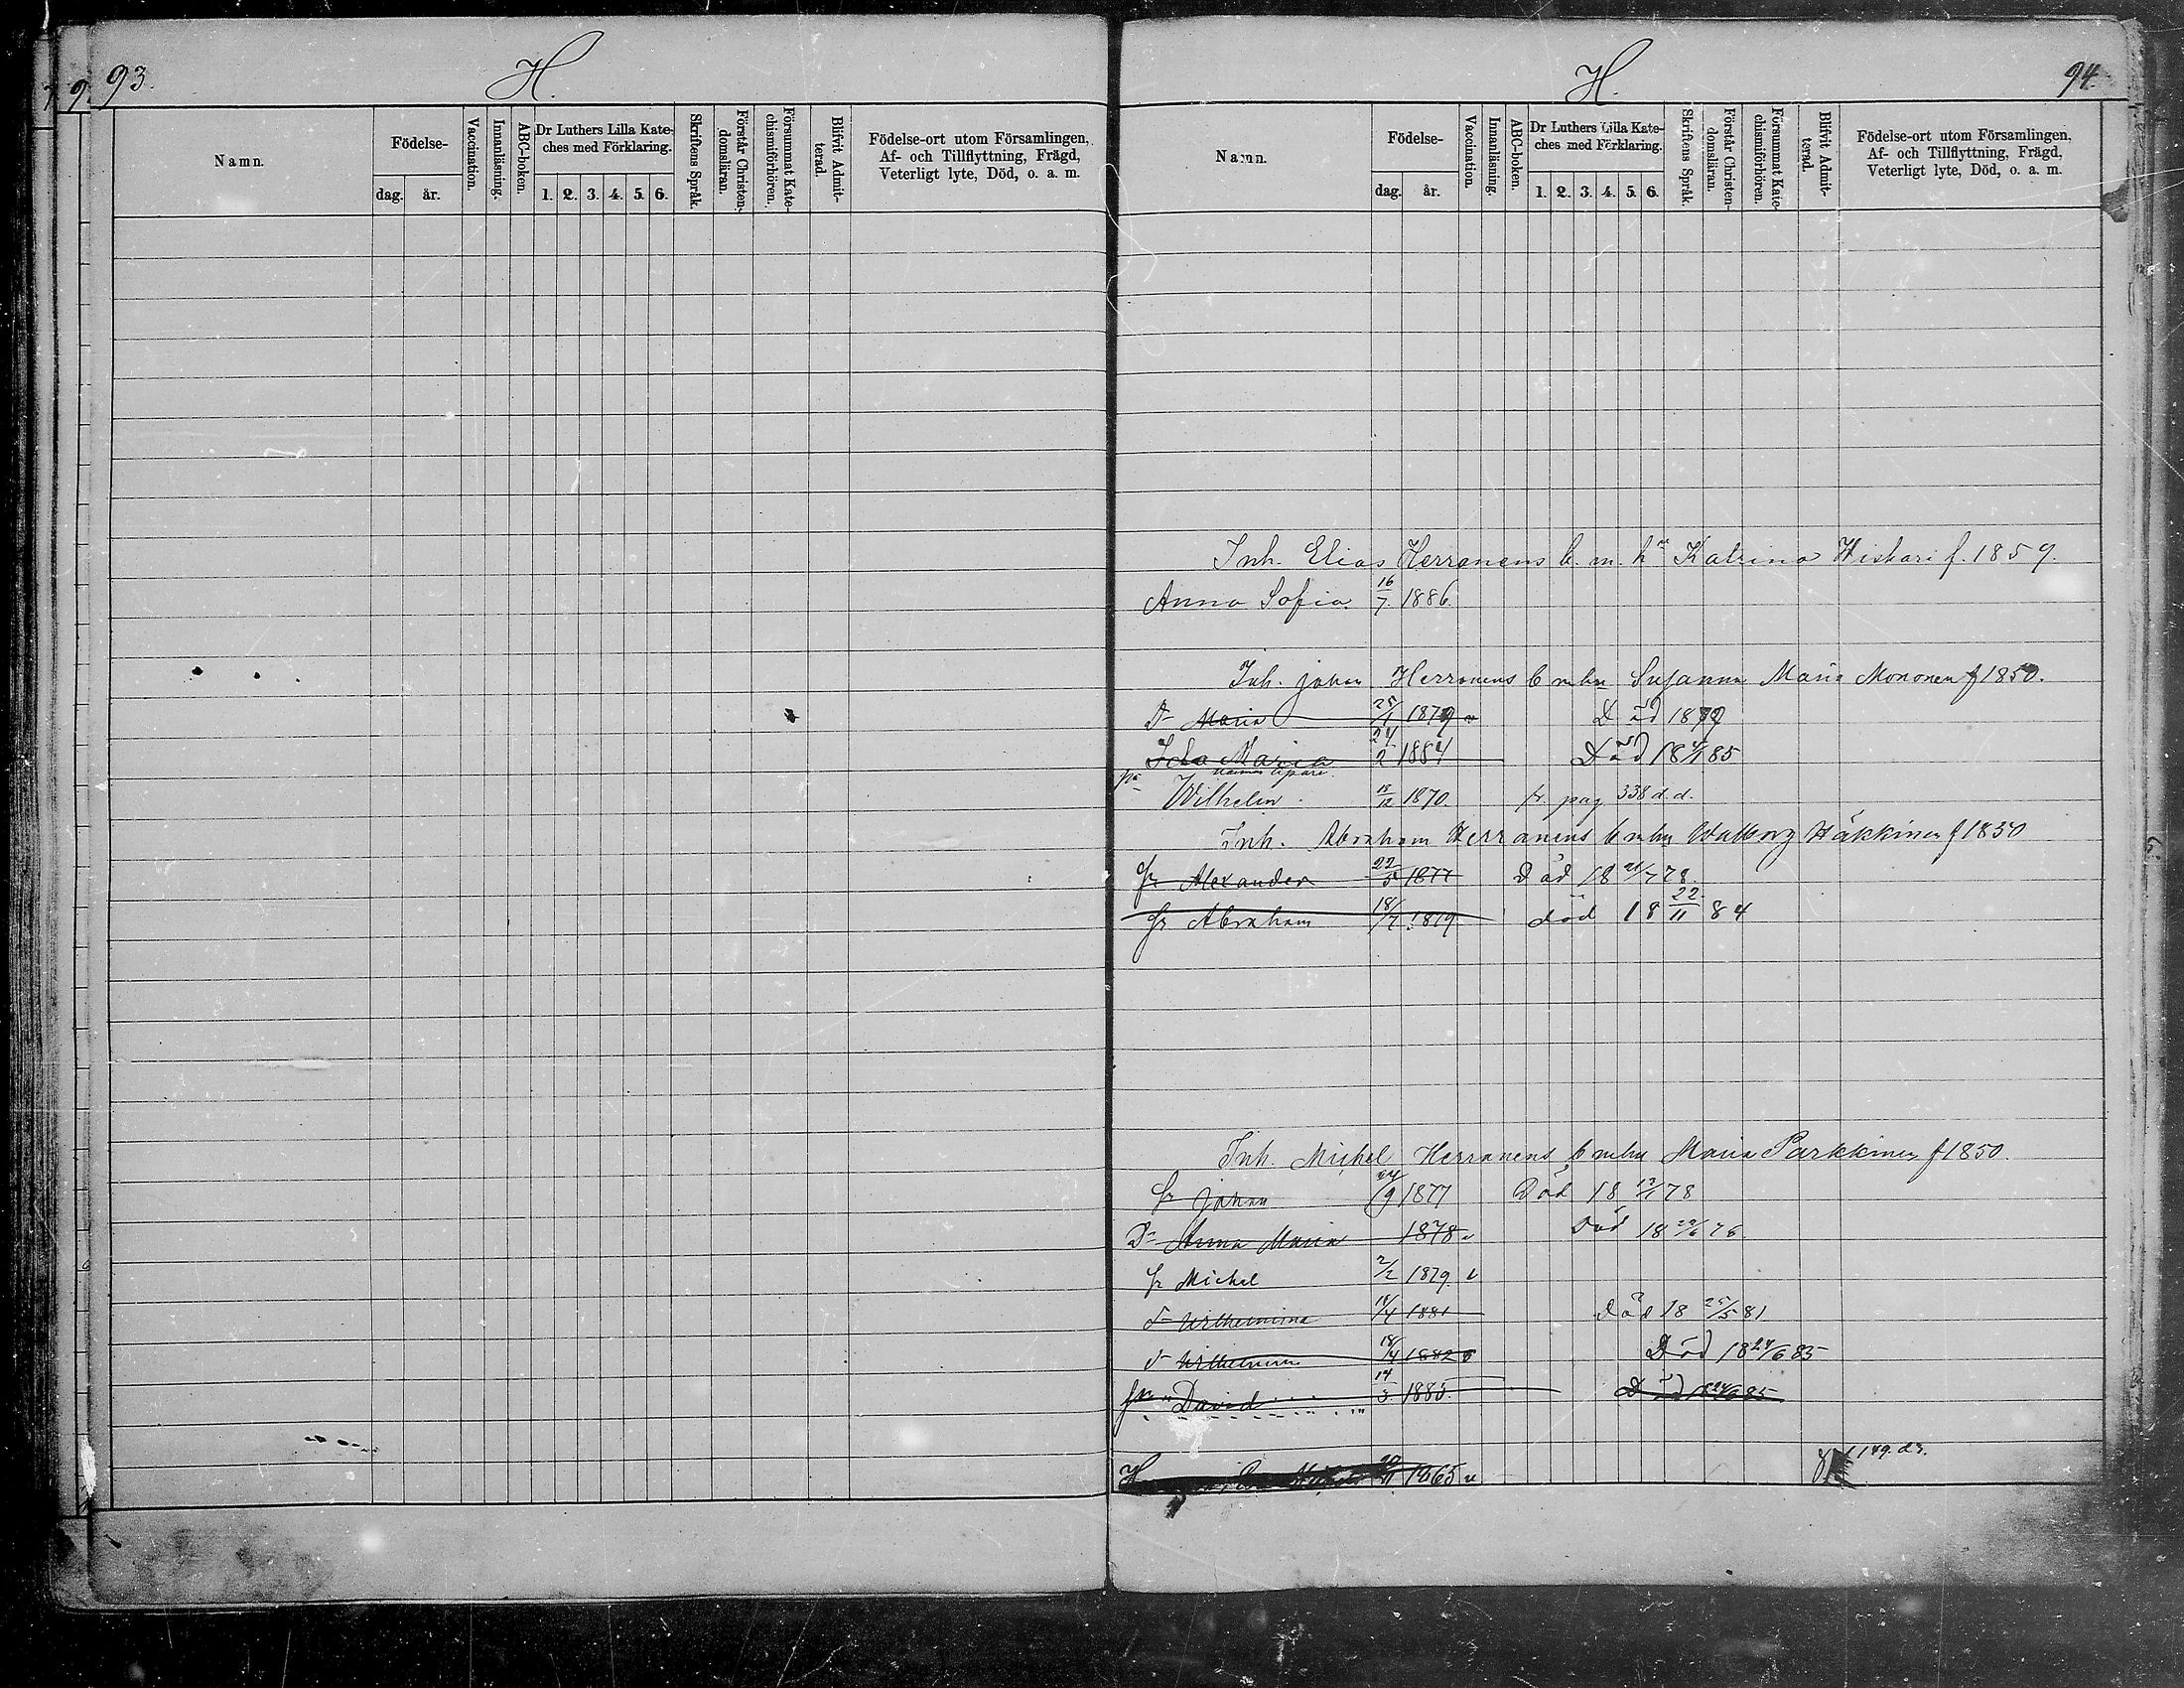 93.
H.
Namn.
Födelse-
dag. år.
Vaccination.
Innanläsning.
ABC-boken.
Dr Luthers Lilla Kate-
ches med Förklaring.
1. 2. 3. 4. 5. 6.
Skriftens Språk.
Förstår Christen-
domsläran.
Försummat Kate-
chismiförhören.
Blifvit Admit-
terad.
Födelse-ort utom Församlingen,
Af- och Tillflyttning, Frägd,
Veterligt lyte, Död, o. a. m.
H.
94.
Namn.
Födelse-
dag. år.
Vaccination.
Innanläsning.
ABC-boken.
Dr Luthers Lilla Kate-
ches med Förklaring.
1. 2. 3. 4. 5. 6.
Skriftens Språk.
Förstår Christen-
domsläran.
Försummat Kate-
chismiförhören.
Blifvit Admit-
terad.
Födelse-ort utom Församlingen,
Af- och Tillflyttning, Frägd,
Veterligt lyte, Död, o. a. m.
Inh. Elias Herranens b. m. h Katrina Hiskari f. 1859.
Anna Sofia 16/7 1886.
Inh. Johan Herranens b m hu Susanna Maria Mononen f 1850.
Dr Maria 25/1 1879 v Död 1879
Ida Maria 24/2 1884 Död 18 85
Wilhelm 18/12 1870. fr. pag 338 d. d.
Inh. Abraham Herranens b m hu Walborg Häkkinen f 1850
Sr Alexander 22/5 1877 Död 18 21/7 78.
Sr Abraham 18/7 1879 död 18 22/11 84
Inh. Michel Herranens b m hu Maria Parkkinen f 1850.
Sr Johan 24/9 1877 Död 18 78
Dr Anna Maria 1878 v Död 18 76
Sr Michel 2/2 1879. v
Dr Wilhelmina 18/4 1881 Död 18 25/5 81
Dr Wilhelmina 18/4 1882 v Död 18 24/6 85
Sr David 14/3 1885. Död 18 24/6 85
H 1865 v 149. d3.